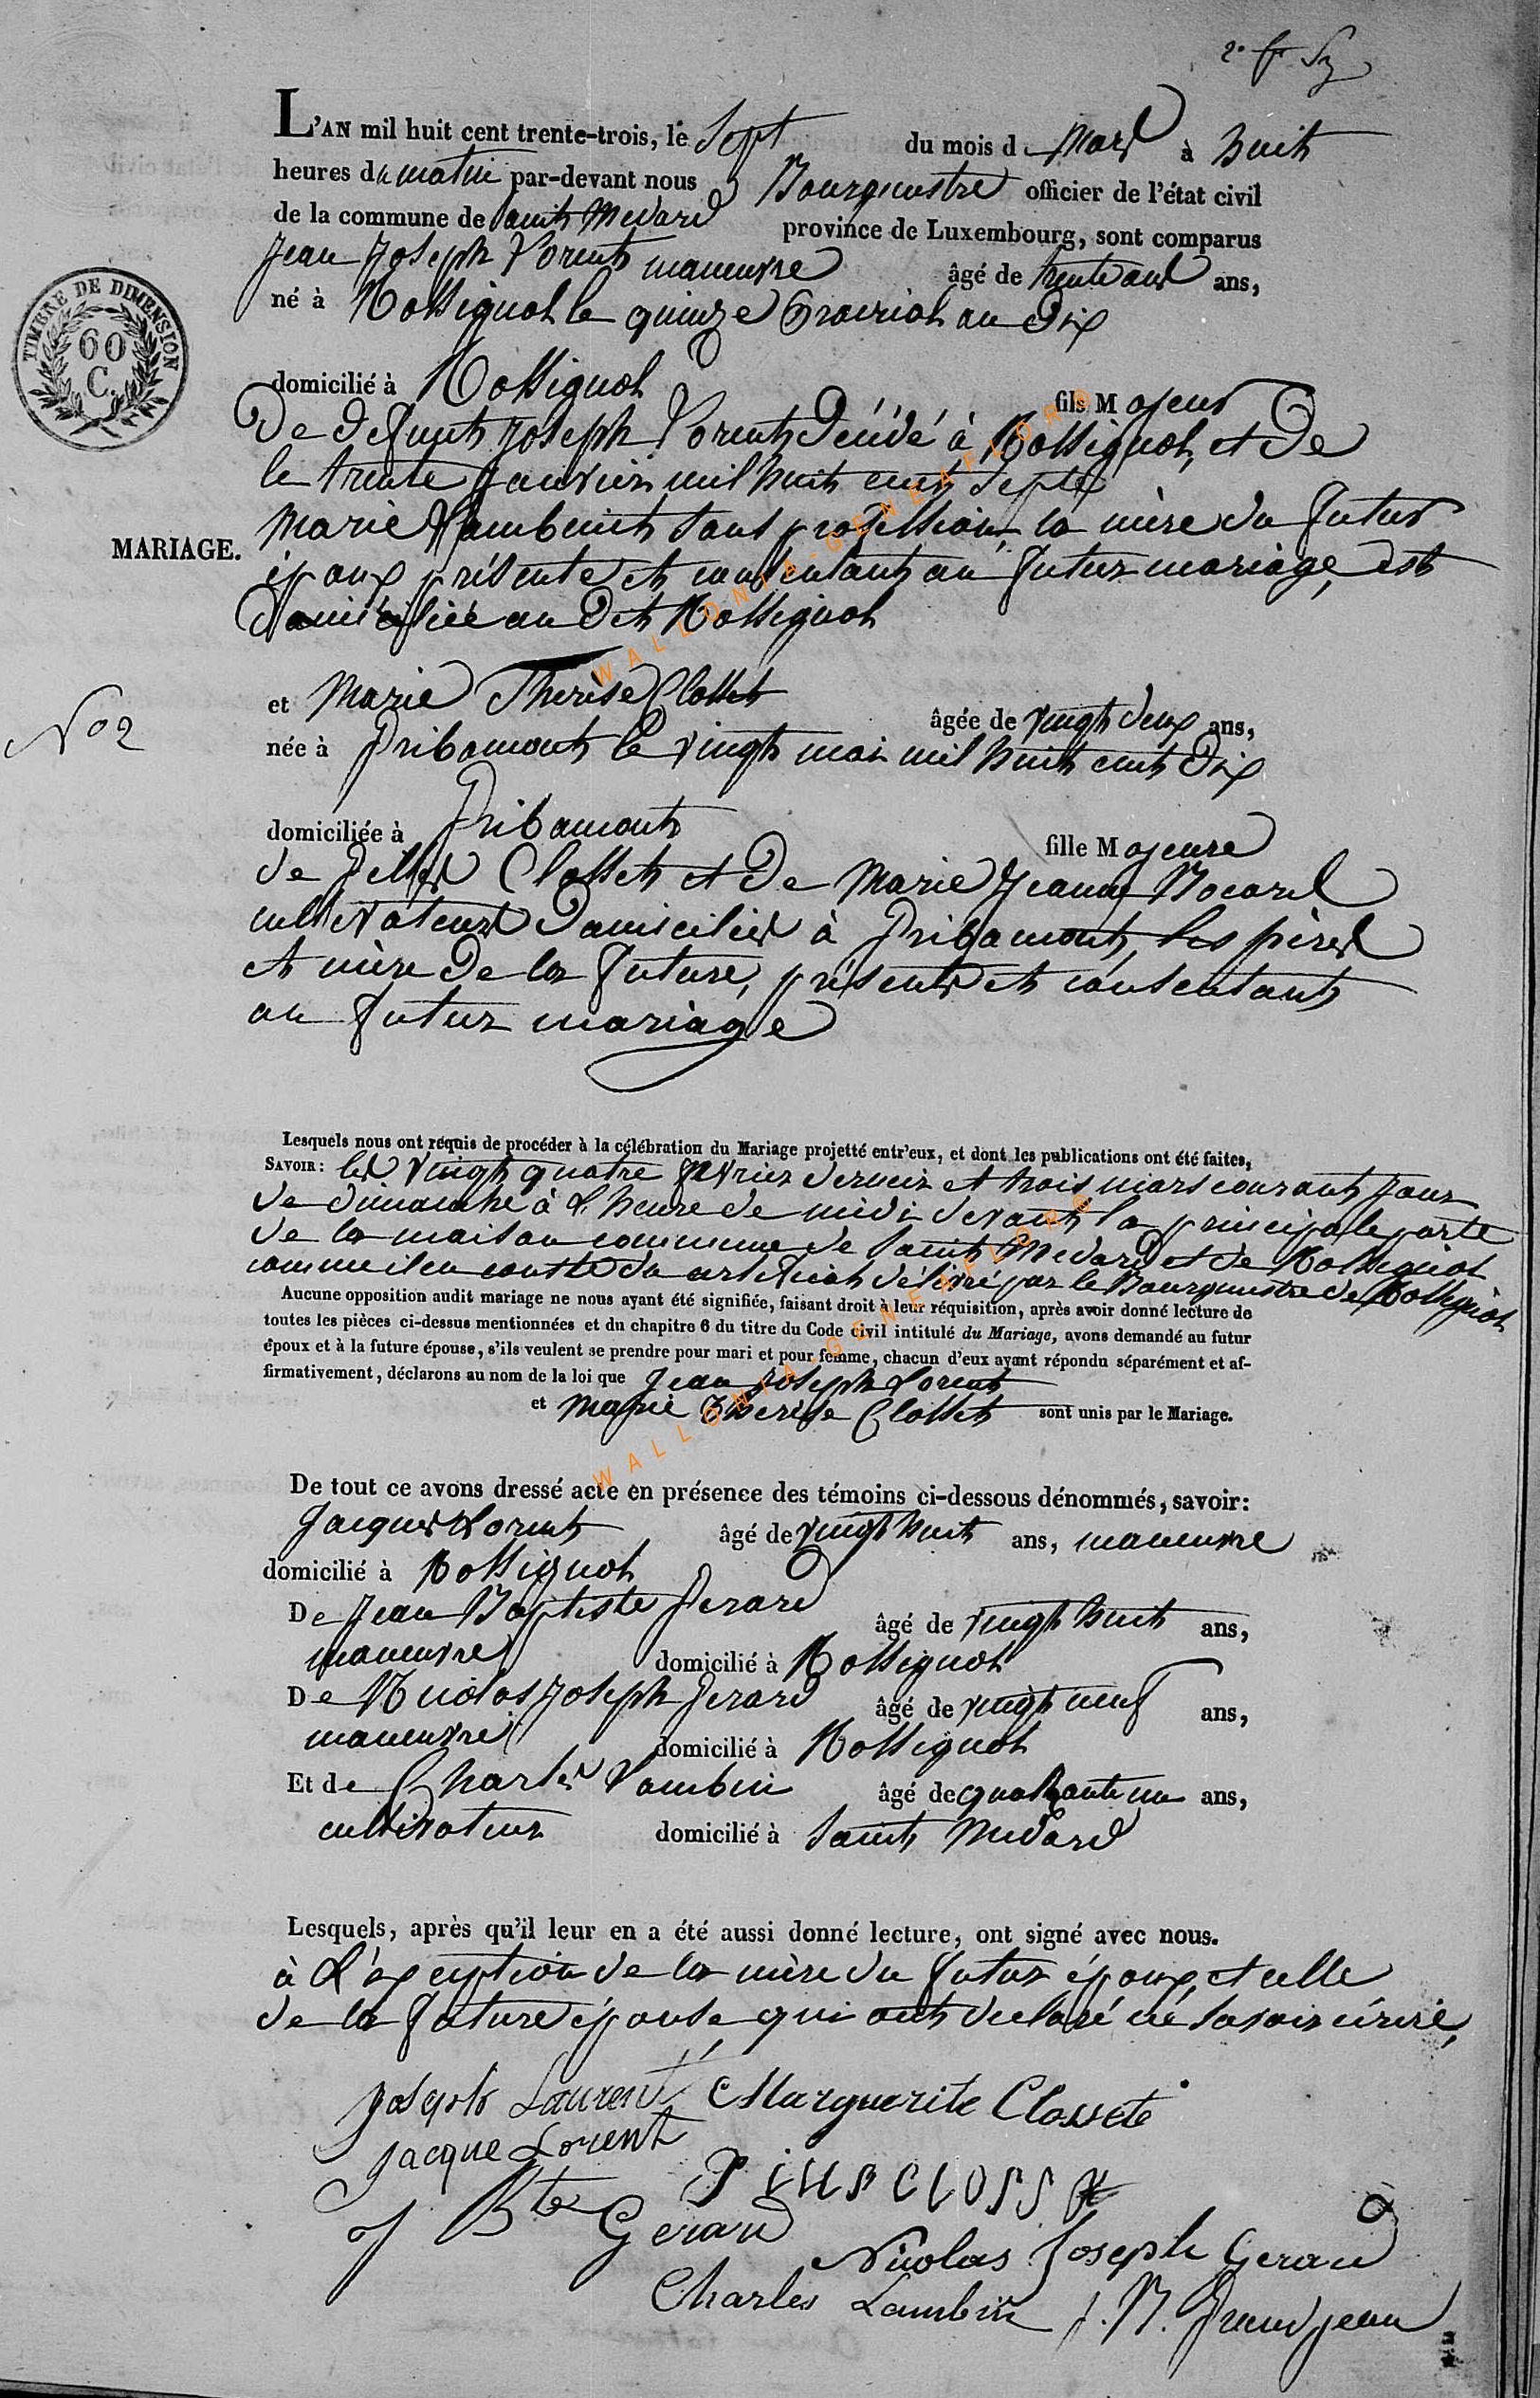 2e fr Sz
L'AN mil huit cent trente-trois, le Sept du mois de Mars à huit
heures du matin par-devant nous Bourgmestre officier de l'état civil
de la commune de Saint Medard province de Luxembourg, sont comparus
Jean Joseph Lorent maneuvre âgé de trente ans ans,
né à Rossignol le quinze prairial an Dix
domicilié à Rossignol fils Majeur
De Defunt Joseph Lorent Décédé à Rossignol, et De
le trente Janvier mil huit cent Sept
Marie Lambinet sans profession, la mère du futur
époux présente et consentant au futur mariage, est
Domiciliée au Dit Rossignol
MARIAGE.
TIMBRE DE DIMENSION
60
C.
No 2
et Marie Therèse Closset âgée de vingt deux ans,
née à Pribamont le vingt mai mil huit cent Dix
domiciliée à Pribamont fille Majeure
de Closset et De Marie Jeanne
cultivateurs Domiciliés à Pribamont, les pères
et mère De la future, présents et consentants
au futur mariage
Lesquels nous ont requis de procéder à la célébration du Mariage projetté entr'eux, et dont les publications ont été faites,
SAVOIR: les vingt quatre fevrier dernier et trois mars courant jour
de dimanche à l'heure de midi devant la principale porte
de la maison commune de Saint Medard et de Rossignol
comme il en conste du certificat délivré par le Bourgmestre de Rossignol
Aucune opposition audit mariage ne nous ayant été signifiée, faisant droit à leur réquisition, après avoir donné lecture de
toutes les pièces ci-dessus mentionnées et du chapitre 6 du titre du Code civil intitulé du Mariage, avons demandé au futur
époux et à la future épouse, s'ils veulent se prendre pour mari et pour femme, chacun d'eux ayant répondu séparément et af-
firmativement, déclarons au nom de la loi que Jean Joseph Lorent
et Marie Therèse Closset sont unis par le Mariage.
De tout ce avons dressé acte en présence des témoins ci-dessous dénommés, savoir:
Jacques Lorent âgé de vingt huit ans, maneuvre
domicilié à Rossignol
De Jean Baptiste Jerard âgé de vingt huit ans,
maneuvre domicilié à Rossignol
De Nicolas Joseph Jerard âgé de vingt neuf ans,
maneuvre domicilié à Rossignol
Et de Charles Lambin âgé de quarante un ans,
cultivateur domicilié à Saint Medard
Lesquels, après qu'il leur en a été aussi donné lecture, ont signé avec nous.
à L'exception de la mère du futur époux, et celle
de la future épouse, qui ont declaré ne savoir écrire,
Joseph Laurent Marguerite Clossete
Jacque Lorent
J Bte Gerard
Nicolas Joseph Gerard
Charles Lambin J. N. Grandjean
WALLONIA-GENEAFLOR®
WALLONIA-GENEAFLOR®